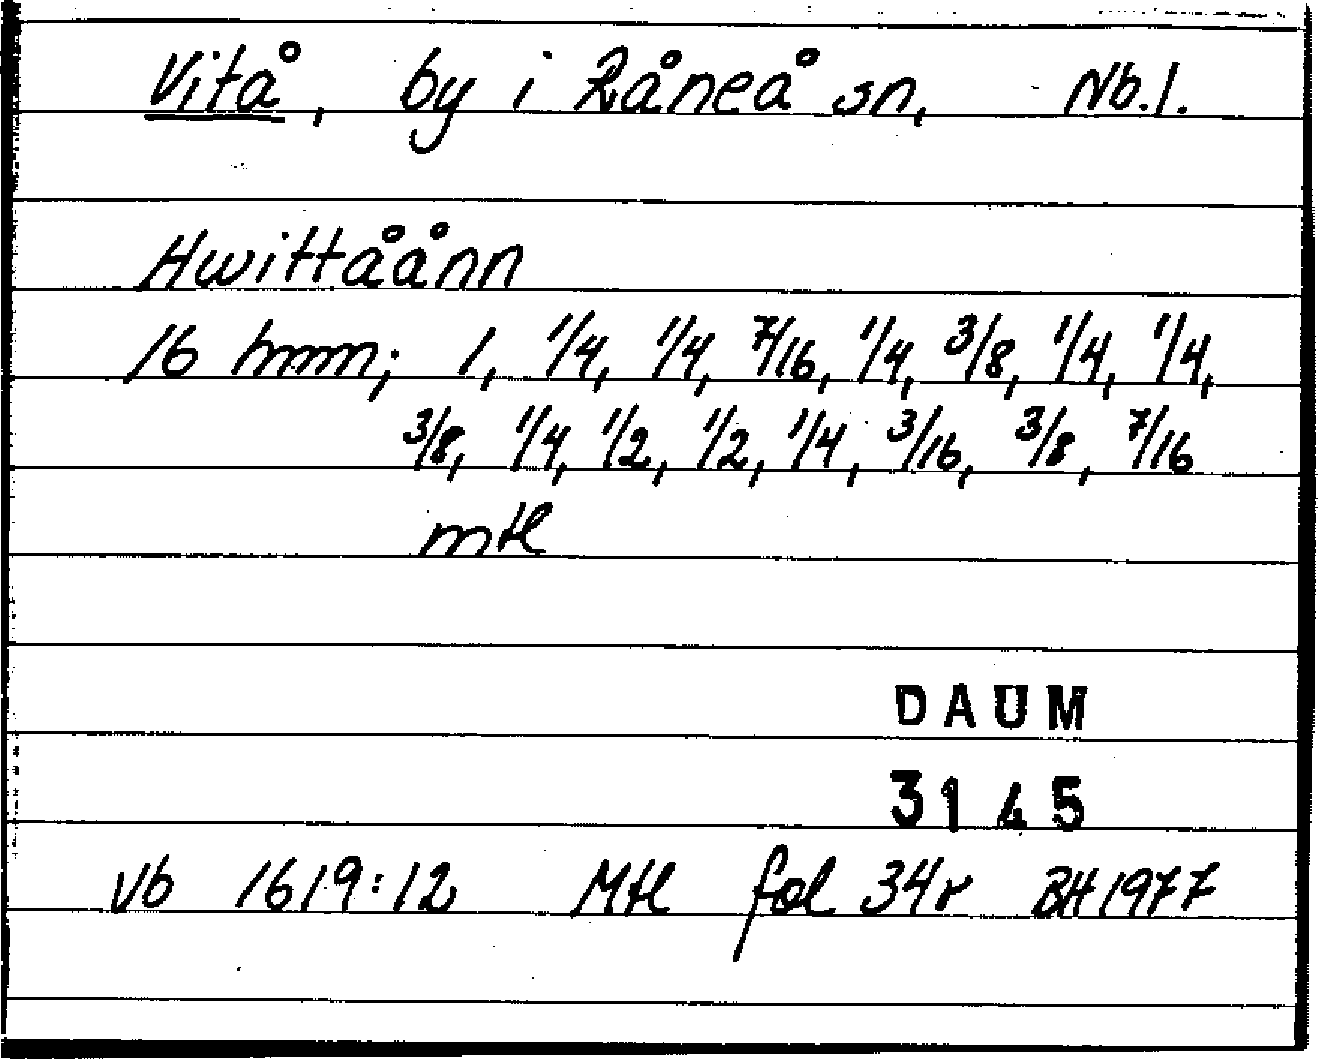 Vitå, by i Råneå sn, Nb.l.
Hwittåånn
16 hmn; 1, 1/4, 1/4, 7/16, 1/4, 3/8, 1/4, 1/4,
3/8, 1/4, 1/2, 1/2, 1/4, 3/16, 3/8, 7/16
mtl
DAUM
3145
Vb 1619:12 Mtl fol 34r BH 1977